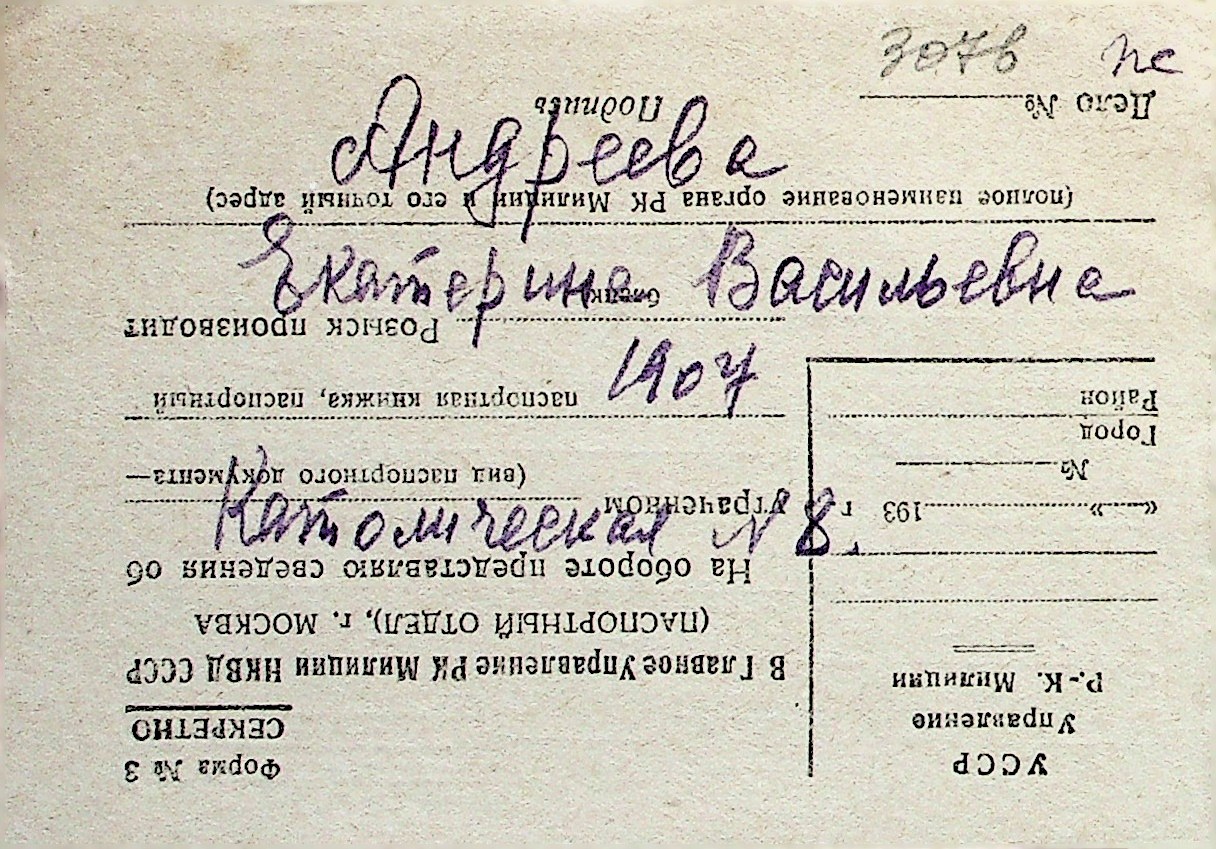 3076 пс
Андреева
Екатерина Васильевна
1907
Католическая № 8.
Форма № 3
СЕКРЕТНО
УССР
Управление
Р.-К. Милиции
«——»193 г.
№
Город
Район
В Главное Управление РК Милиции НКВД СССР
(ПАСПОРТНЫЙ ОТДЕЛ), г. МОСКВА
На обороте представляю сведения об
утраченном
(вид паспортного документа—
паспортная книжка, паспортный
бланк)
Розыск производит
(полное наименование органа РК Милиции и его точный адрес)
Подпись
Дело №